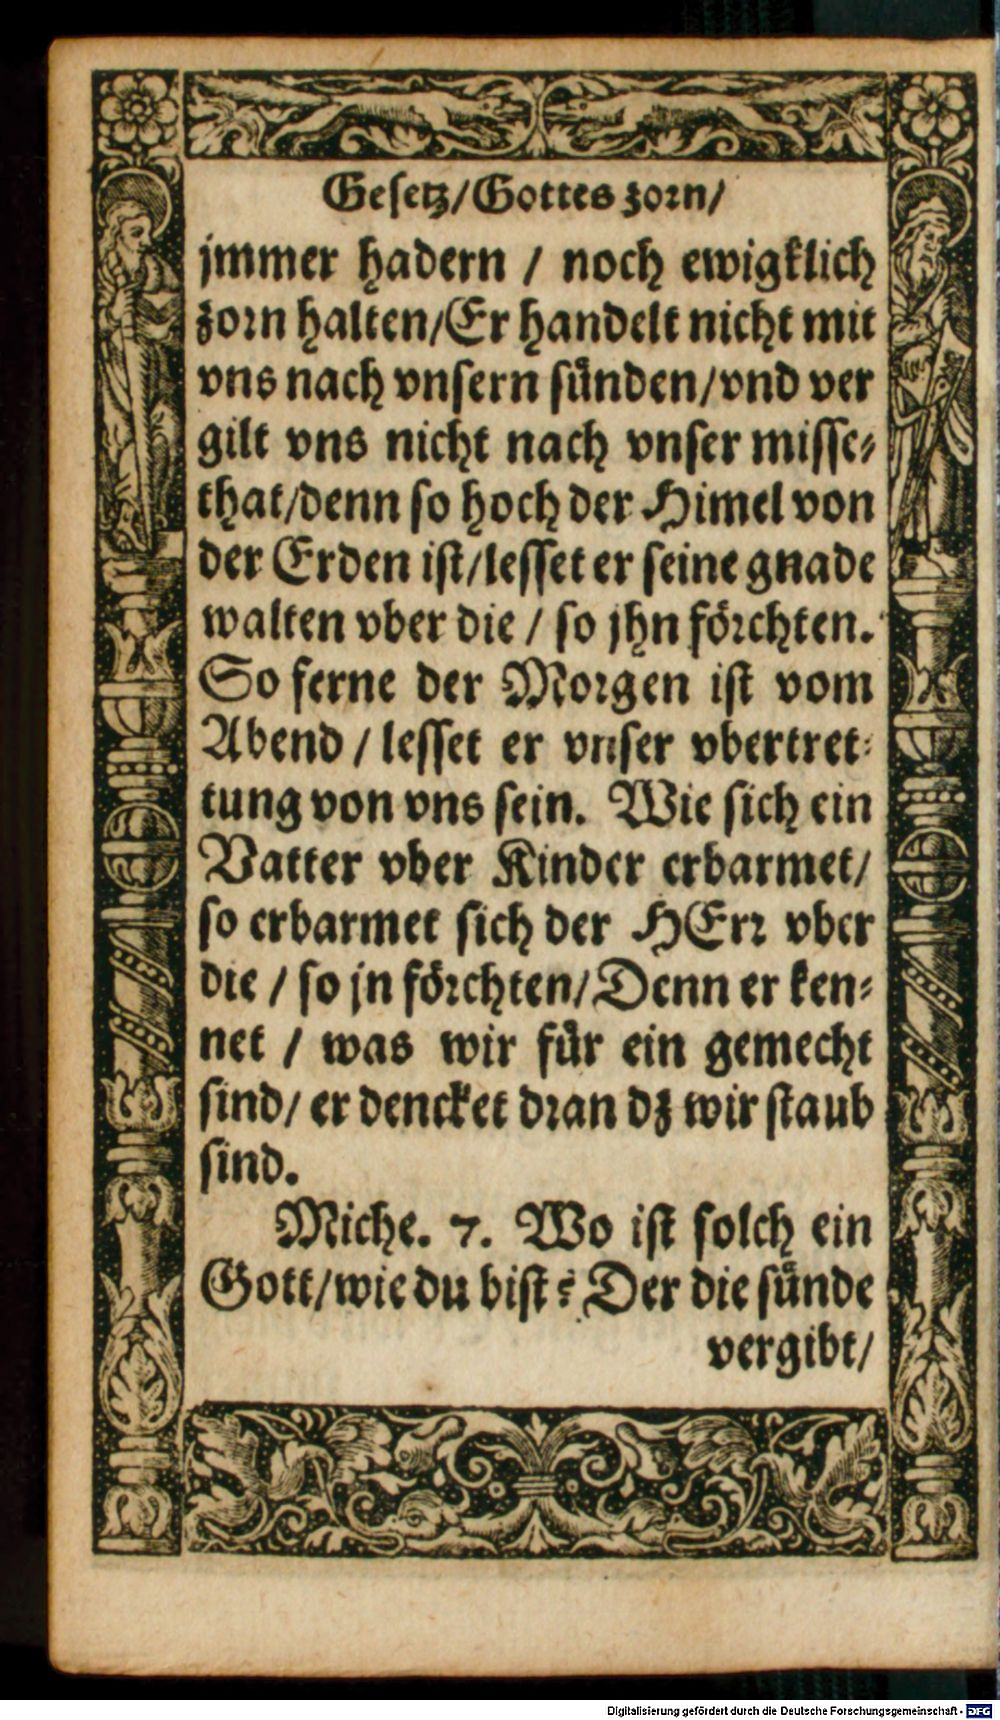 Gesetz/Gottes zorn/
jmmer hadern / noch ewigklich
zorn halten/Er handelt nicht mit
vns nach vnsern sünden/vnd ver
gilt vns nicht nach vnser misse-
that/denn so hoch der Himel von
der Erden ist/lesset er seine gnade
walten vber die / so jhn förchten.
So ferne der Morgen ist vom
Abend / lesset er vnser vbertret-
tung von vns sein. Wie sich ein
Vatter vber Kinder erbarmet/
so erbarmet sich der HErr vber
die / so jn förchten/Denn er ken-
net / was wir für ein gemecht
sind/ er dencket dran dz wir staub
sind.
Miche. 7. Wo ist solch ein
Gott/wie du bist? Der die sünde
vergibt/
Digitalisierung gefördert durch die Deutsche Forschungsgemeinschaft - DFG